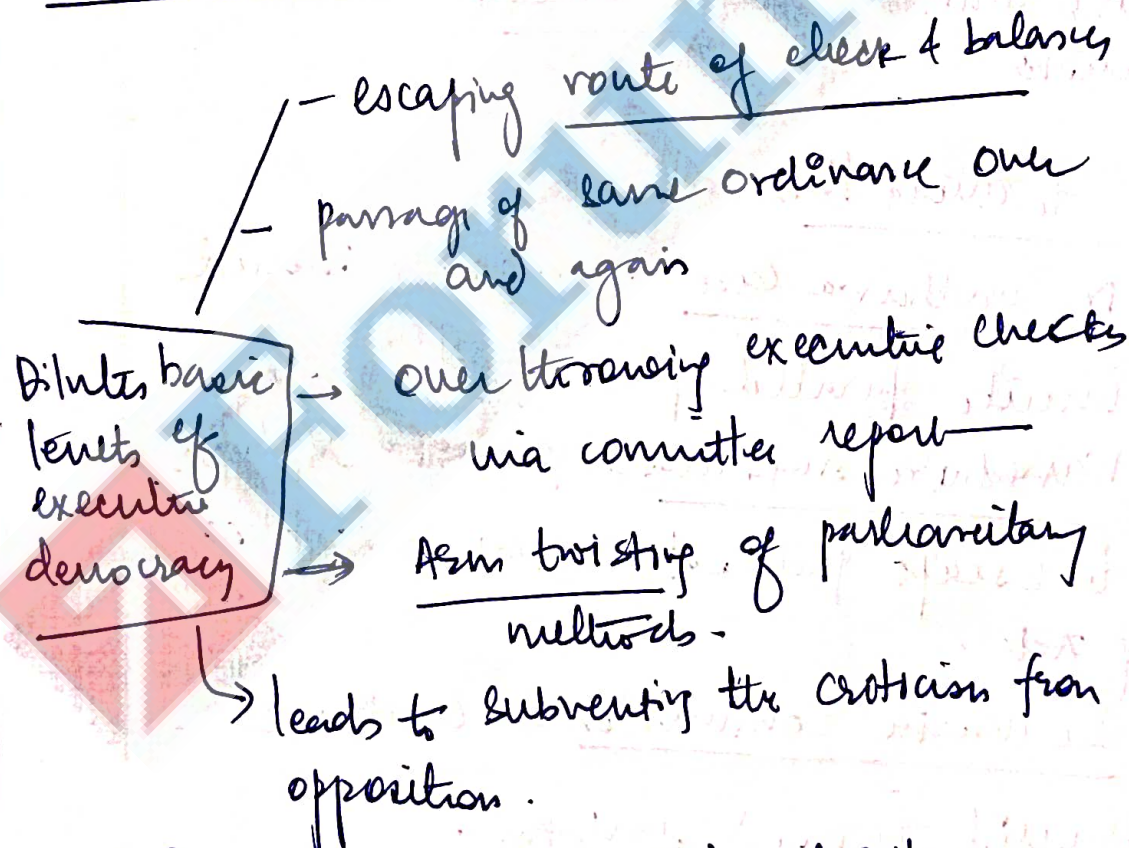 – escaping route of check & balances
– passage of same ordinance over
and again
Dilutes basic
tenets of
executive
democracy
→ Over throwing executive checks
via committee report
→ Arm twisting of parliamentary
methods.
→ leads to subventing the criticism from
opposition.
Forum